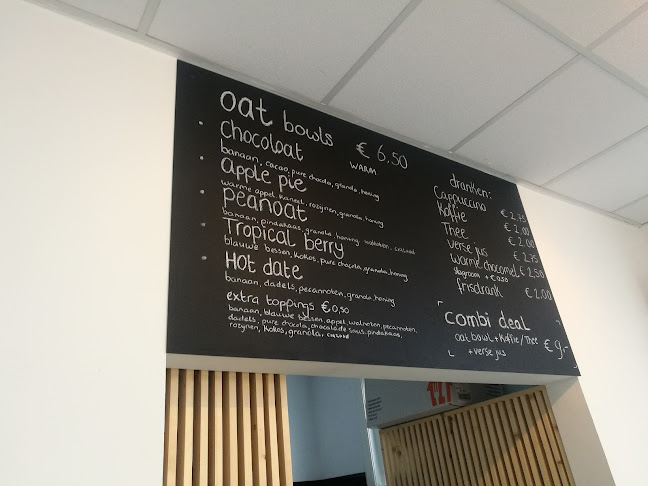 oat bowls € 6.50
Chocoloat WARM
banaan, cacao, pure chocola, granola, honing
apple pie
warme appel, kaneel, rozijnen, granola, honing
Peanoat
banaan, pindakaas, granola, honing, walnoten, cacao
Tropical berry
blauwe bessen, kokos, pure chocola, granola, honing
Hot date
banaan, dadels, pecannoten, granola, honing
extra toppings € 0,50
banaan, blauwe bessen, appel, walnoten, pecannoten,
dadels, pure chocola, chocolade saus, pindakaas,
rozijnen, kokos, granola,
dranken:
Cappuccino € 2,75
Koffie € 2,00
Thee € 2,00
Verse jus € 2,75
Warme chocomel € 2,50
slagroom + € 0,50
frisdrank € 2,00
combi deal
oat bowl + Koffie / Thee € 9,-
+ verse jus